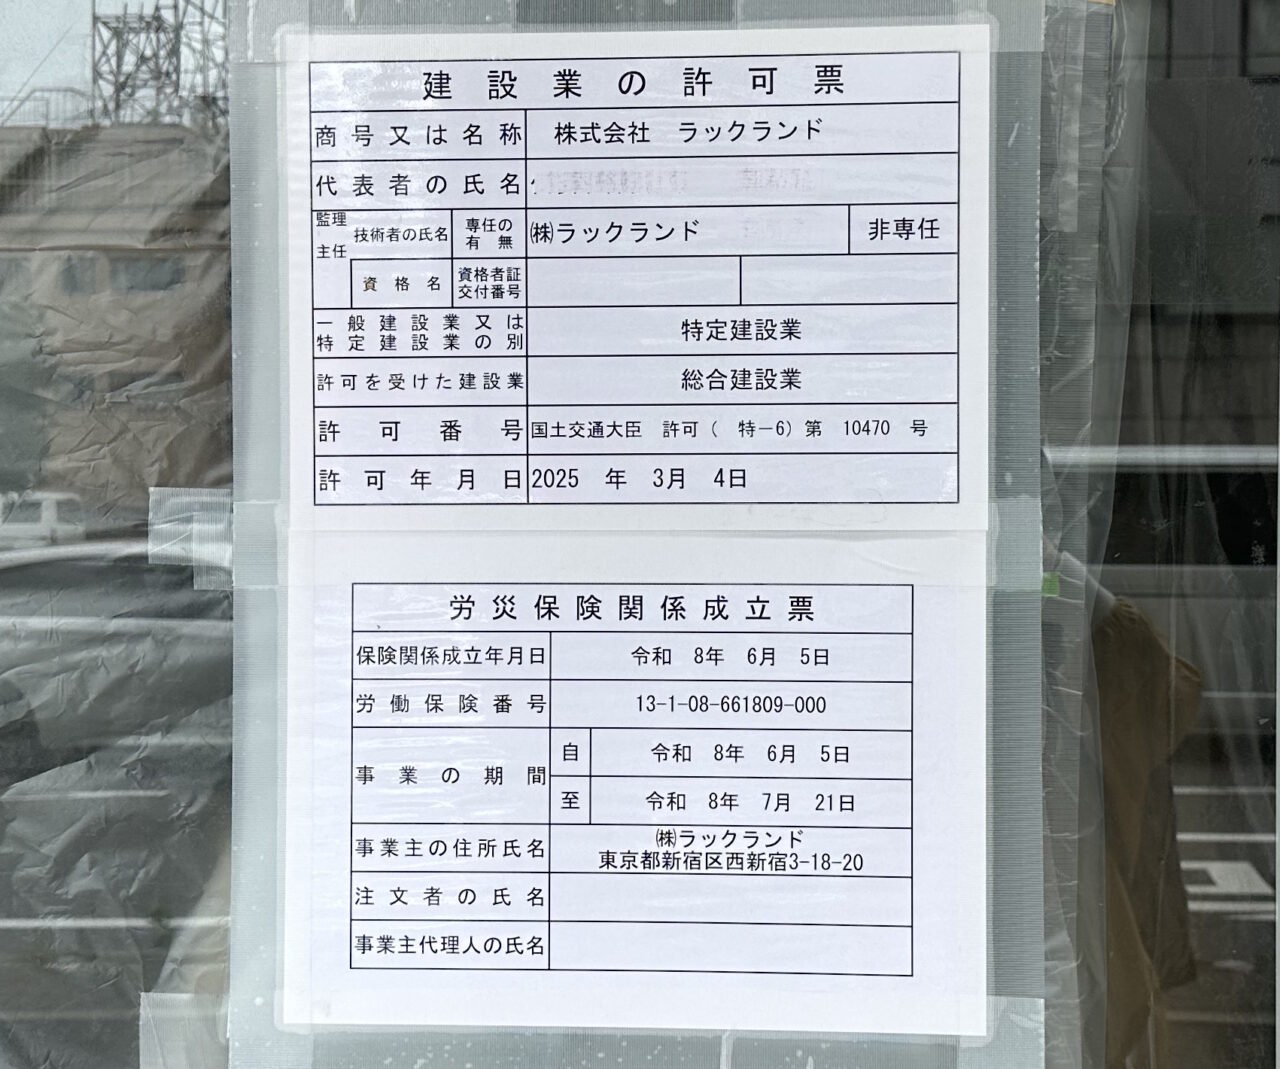 建設業の許可票
商号又は名称 株式会社 ラックランド
代表者の氏名
監理
主任
技術者の氏名 専任の
有無 ㈱ラックランド 非専任
資格名 資格者証
交付番号
一般建設業又は
特定建設業の別 特定建設業
許可を受けた建設業 総合建設業
許可番号 国土交通大臣 許可( 特-6)第 10470 号
許可年月日 2025 年 3月 4日
労災保険関係成立票
保険関係成立年月日 令和 8年 6月 5日
労働保険番号 13-1-08-661809-000
事業の期間 自 令和 8年 6月 5日
至 令和 8年 7月 21日
事業主の住所氏名 ㈱ラックランド
東京都新宿区西新宿3-18-20
注文者の氏名
事業主代理人の氏名